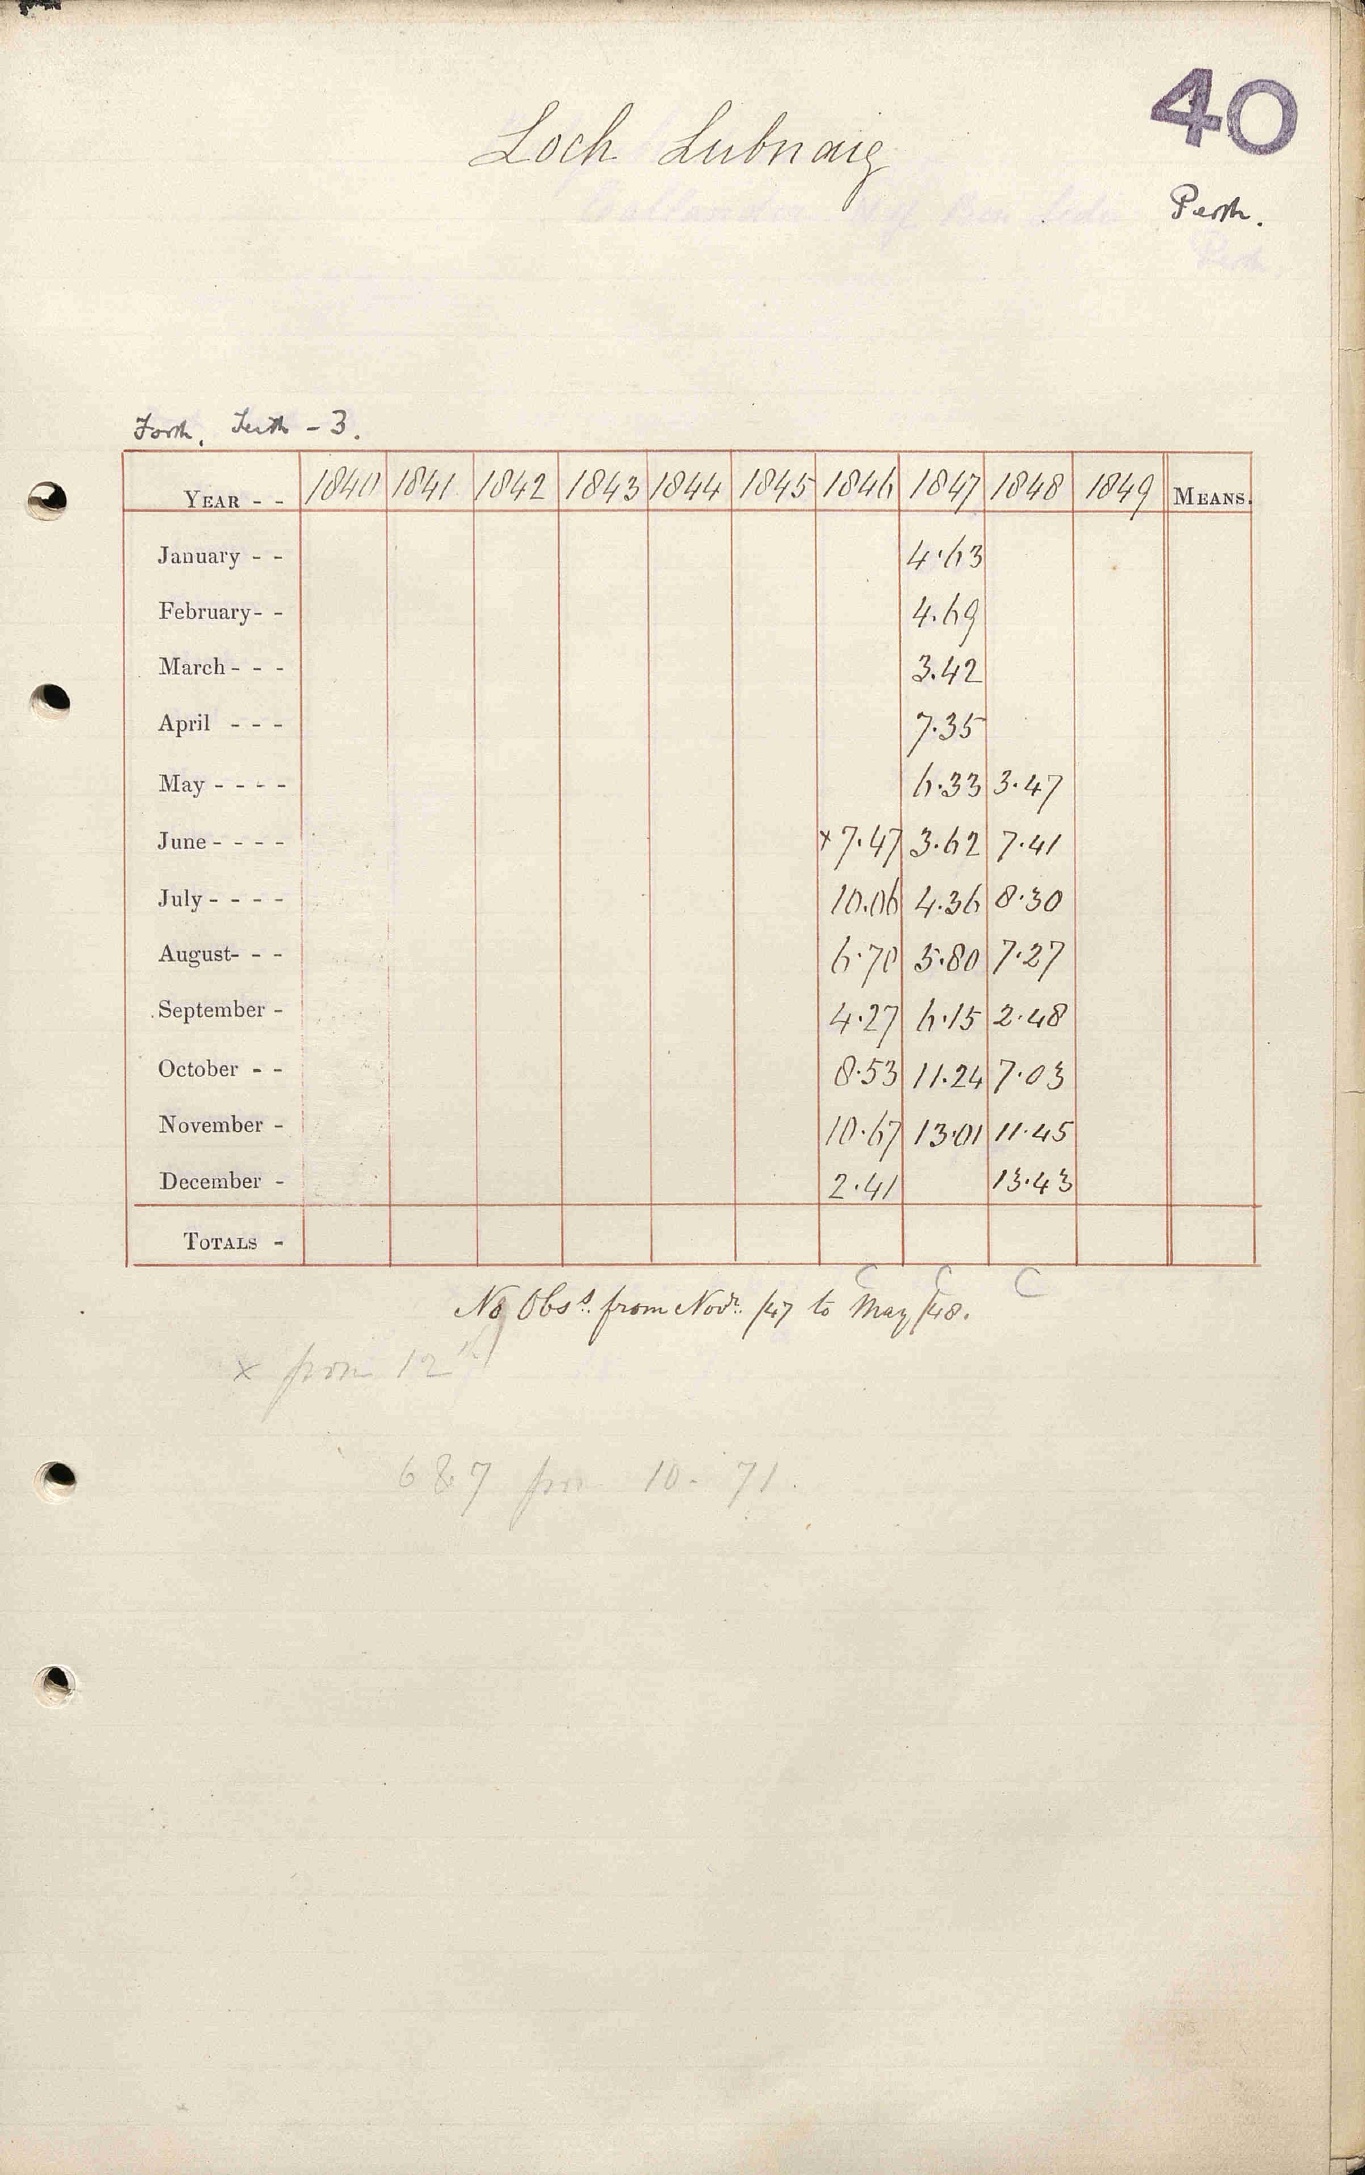 40
Loch Lubnaig
Perth.
Forth. Teith - 3.
YEAR - - 1840 1841 1842 1843 1844 1845 1846 1847 1848 1849 MEANS.
January - - 4.63
February - - 4.69
March - - - 3.42
April - - - 7.35
May - - - - 6.33 3.47
June - - - - x 7.47 3.62 7.41
July - - - - 10.06 4.36 8.30
August - - - 6.70 5.80 7.27
September - 4.27 6.15 2.48
October - - 8.53 11.24 7.03
November - 10.67 13.01 11.45
December - 2.41 13.43
TOTALS -
C C C
No Obss. from Novr. /47 to May /48.
x from 12th
687 10. 71.